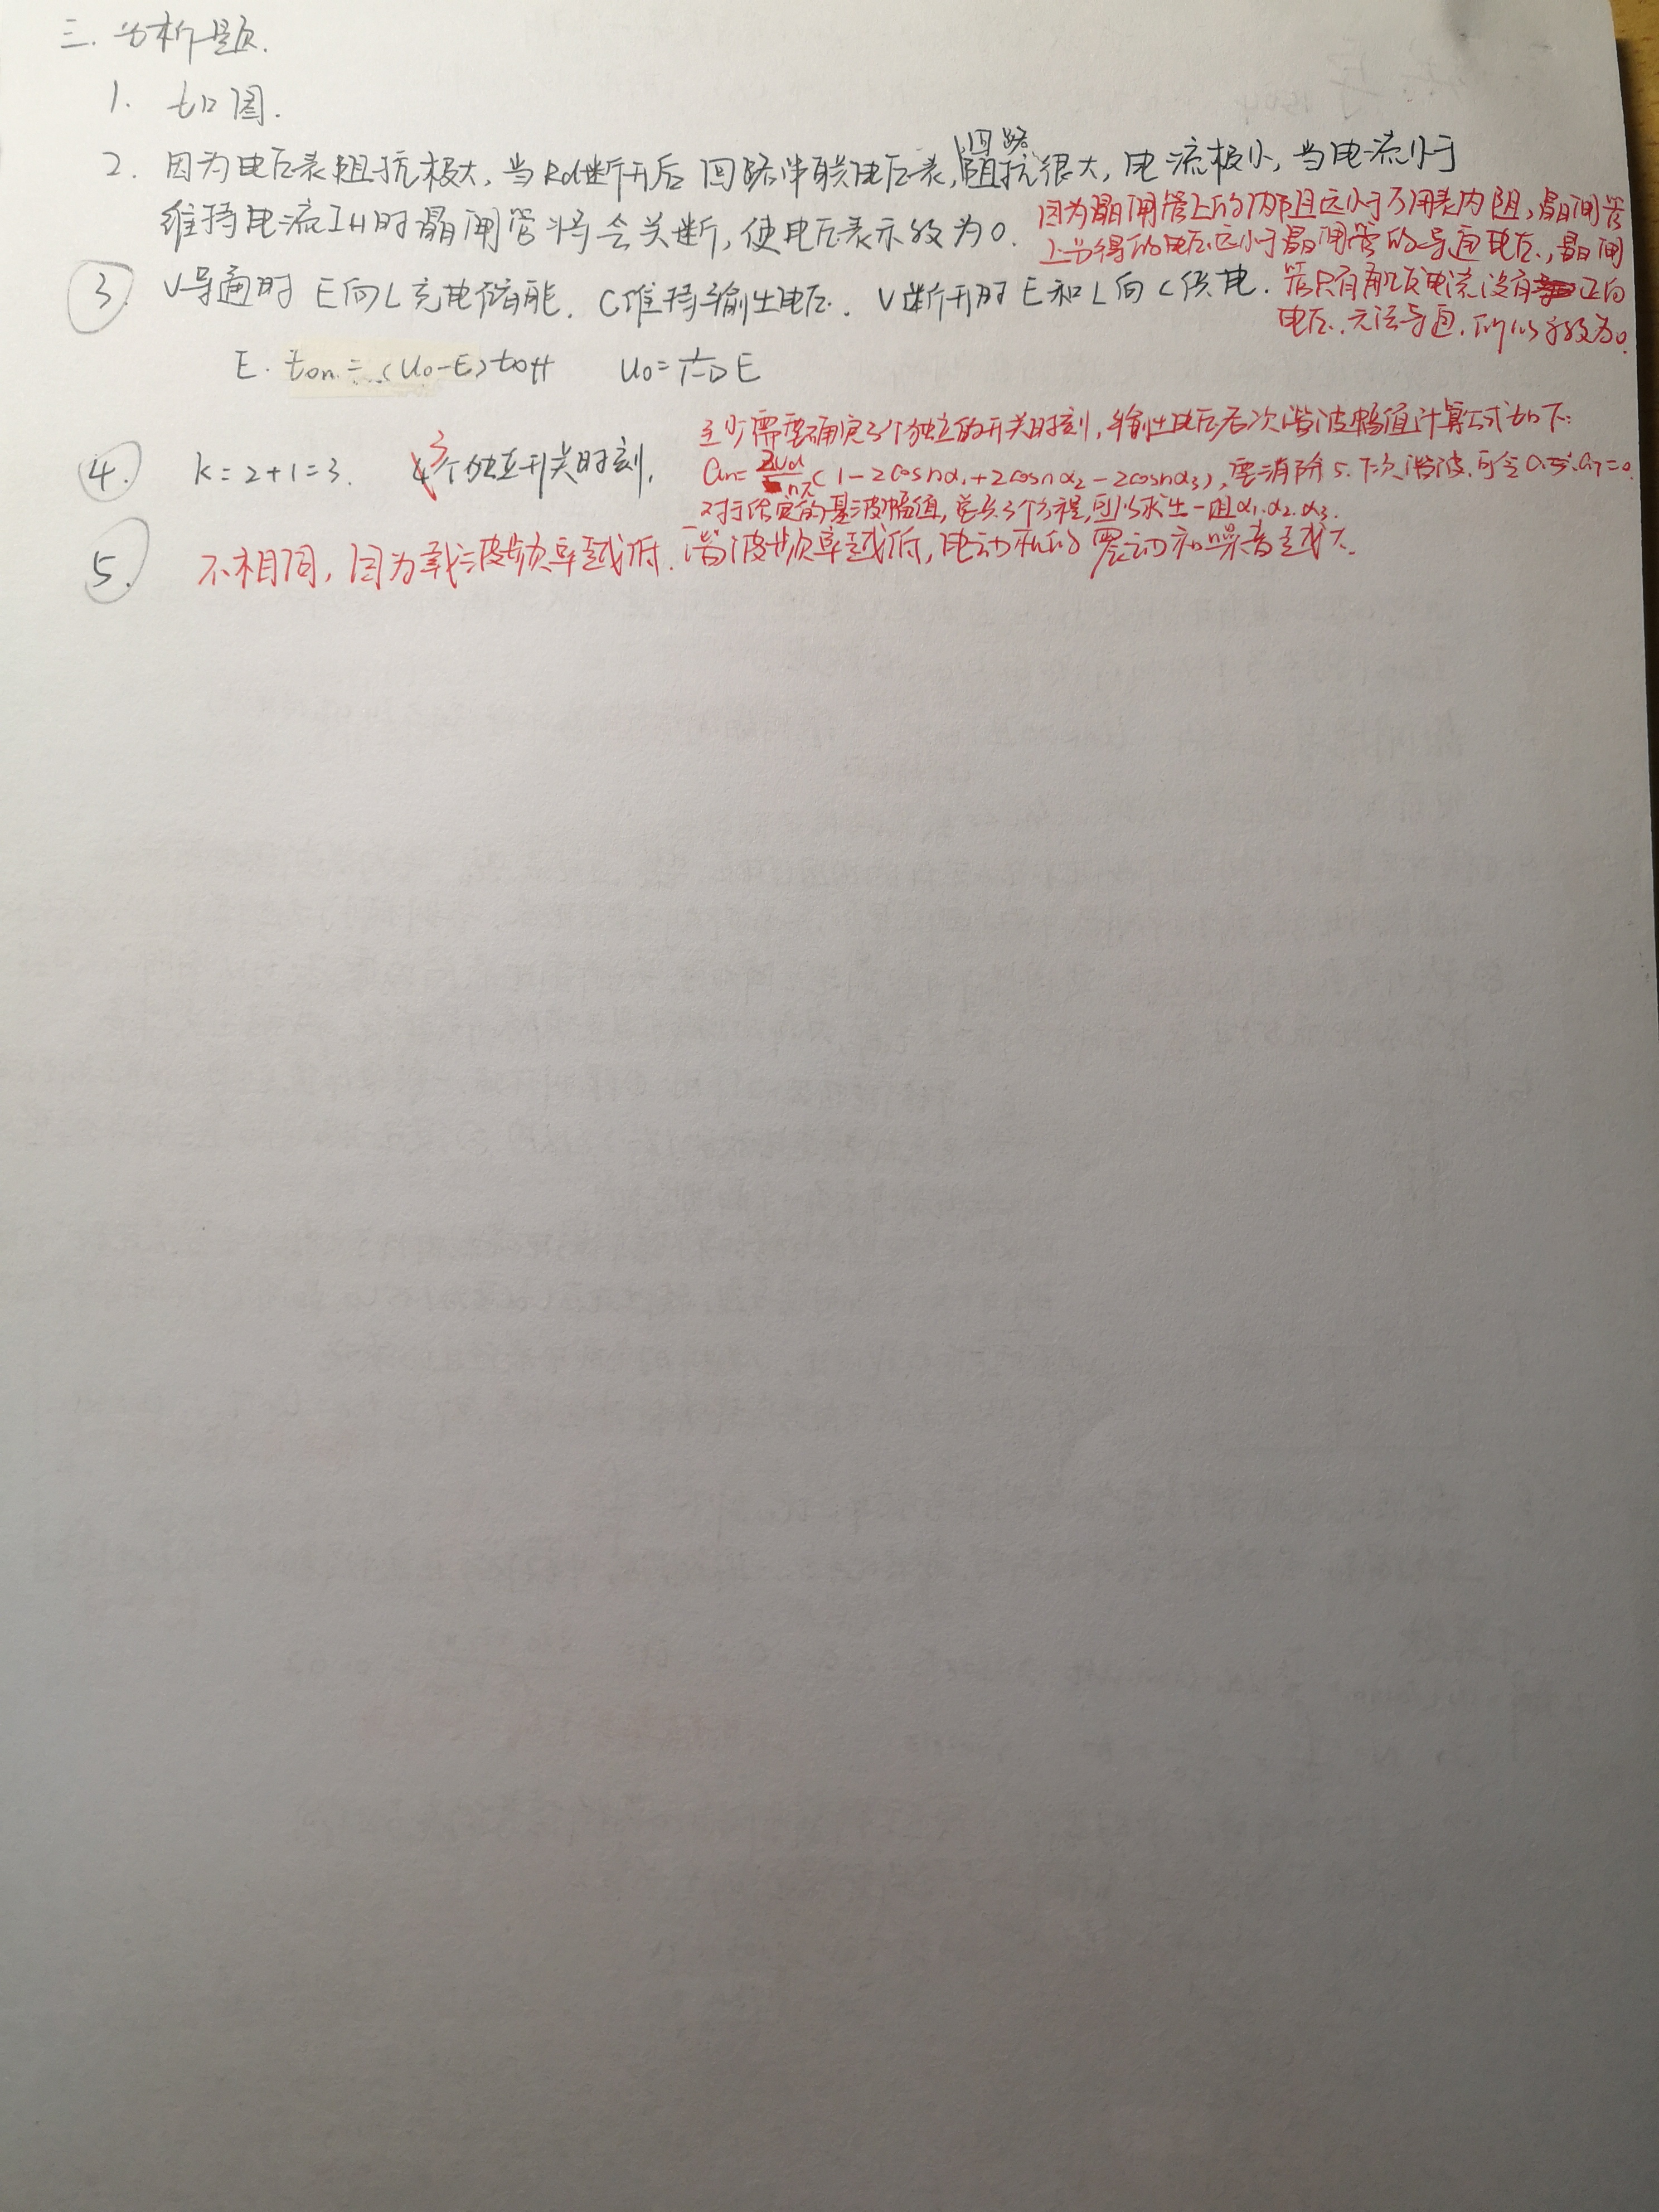 三. 分析题.
1. 如图.
2. 因为电压表阻抗极大, 当Rd断开后 回路串联电压表, 回路阻抗很大, 电流极小, 当电流小于
维持电流IH时晶闸管将会关断, 使电压表示数为0.
因为晶闸管上的内阻远小于万用表内阻, 晶闸管
上分得的电压远小于晶闸管的导通电压, 晶闸
管只有触发电流没有正向
电压. 无法导通. 所以示数为0.
3. V导通时 E向L充电储能. C维持输出电压. V断开时 E和L向C供电.
E·ton = (U0-E)toff U0=1/(1-D) E
4. k=2+1=3. 3个独立开关时刻.
至少需要确定3个独立的开关时刻, 输出电压各次谐波幅值计算公式如下:
an=2Ud/nπ(1-2cosnα1+2cosnα2-2cosnα3), 要消除5.7次谐波.可令a5=a7=0
对于给定的基波幅值, 总共3个方程, 可以求出一组α1.α2.α3.
5. 不相同, 因为载波频率越低. 谐波频率越低, 电动机的震动和噪音越大.